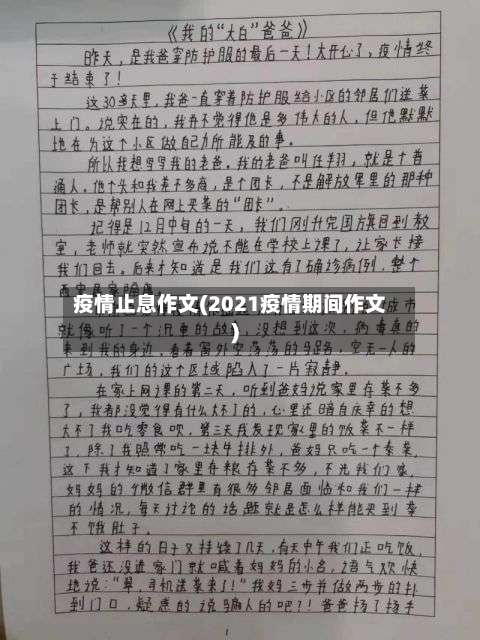 《我的“大白”爸爸》
昨天，是我爸穿防护服的最后一天！太开心了，疫情终
于结束了！
这30多天里，我爸一直穿着防护服给小区的邻居们送菜
上门。说实在的，我并不觉得他是多伟大的人，但他默默
地在为这个小区做自己力所能及的事。
所以我想写写我的老爸。我的老爸叫任翔，就是个普
通人。他个头和我差不多高，是个团长，不是解放军里的那种
团长，是帮别人在网上买菜的“团长”。
记得是12月中旬的一天，我们刚升完国旗回到教
室，老师就突然宣布说不能在学校上课了，让家长接
我们回去。后来才知道是我们这有了确诊病例，整个
西安居家隔离。
疫情止息作文(2021疫情期间作文
)
成市
就像听了一个沉重的故事，没想到这次，病毒真的
来到我的身边，看着窗外空荡荡的马路，空无一人的
广场，我们的这个区域陷入了一片寂静。
在家上网课的第二天，听到爸妈说家里存菜不多
了，我都没觉得有什么大不了的，心里还暗自庆幸的想
大不了我吃零食呗，第三天我发现家里的饭菜不一样
了，除了我照常吃一块牛排外，爸妈只吃一个素菜，
这下我才知道了家里存粮存菜不多，不光我们家，
妈妈的个微信群里有很多邻居面临和我们一样
的情况，每天讨论的话题就是怎么样能买到菜
不饿肚子。
这样的日子又持续了几天，有天中午我们正吃饭，
我爸还没进家门就喊着妈妈的小名，语气欢快
地说：“翠，司机送菜来了！”我妈三步并做两步的扑
到门口，疑惑的说骗人的吧？！爸爸扬了扬手
1